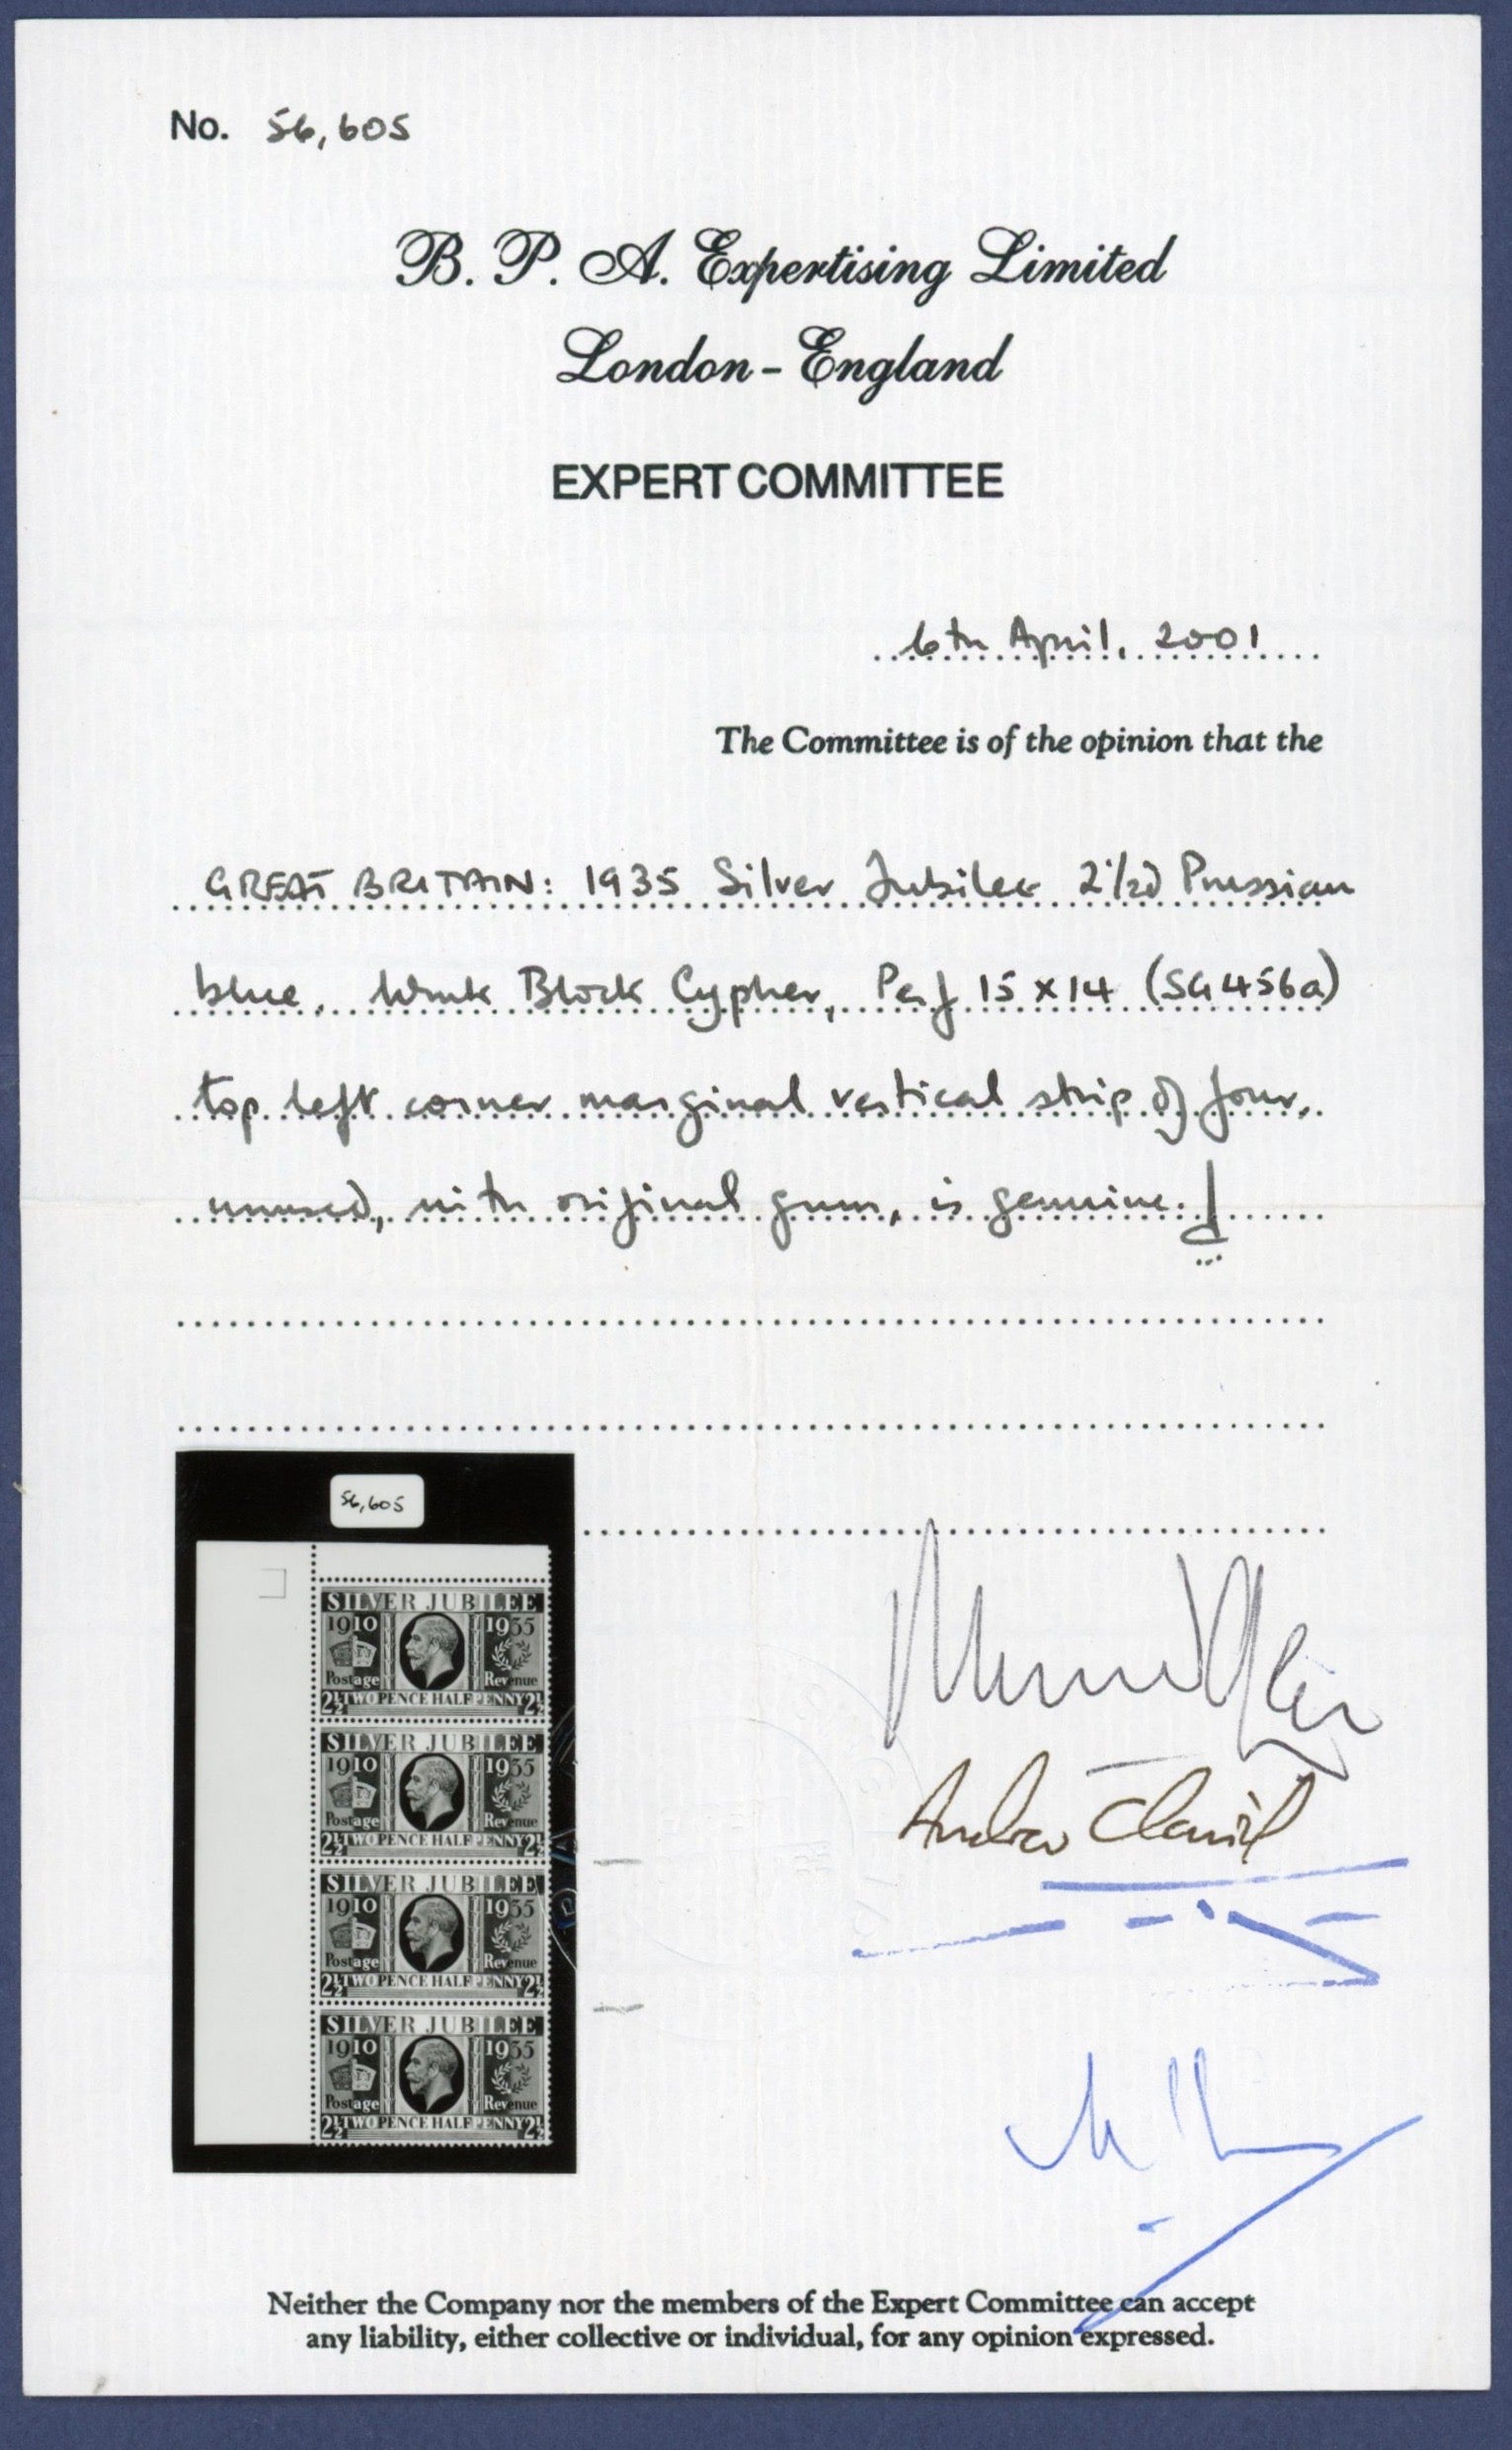 No. 56,605
B. P. A. Expertising Limited
London - England
EXPERT COMMITTEE
6th April, 2001
The Committee is of the opinion that the
GREAT BRITAIN: 1935 Silver Jubilee 2 1/2d Prussian
blue, Wmk Block Cypher, Perf 15 x 14 (SG456a)
top left corner marginal vertical strip of four,
unused, with original gum, is genuine.
56,605
SILVER JUBILEE
1910 1935
Postage Revenue
2½ TWO PENCE HALFPENNY 2½
SILVER JUBILEE
1910 1935
Postage Revenue
2½ TWO PENCE HALFPENNY 2½
SILVER JUBILEE
1910 1935
Postage Revenue
2½ TWO PENCE HALFPENNY 2½
SILVER JUBILEE
1910 1935
Postage Revenue
2½ TWO PENCE HALFPENNY 2½
Neither the Company nor the members of the Expert Committee can accept
any liability, either collective or individual, for any opinion expressed.